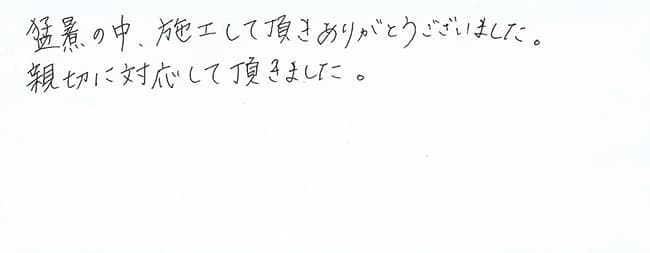 猛暑の中、施工して頂きありがとうございました。
親切に対応して頂きました。